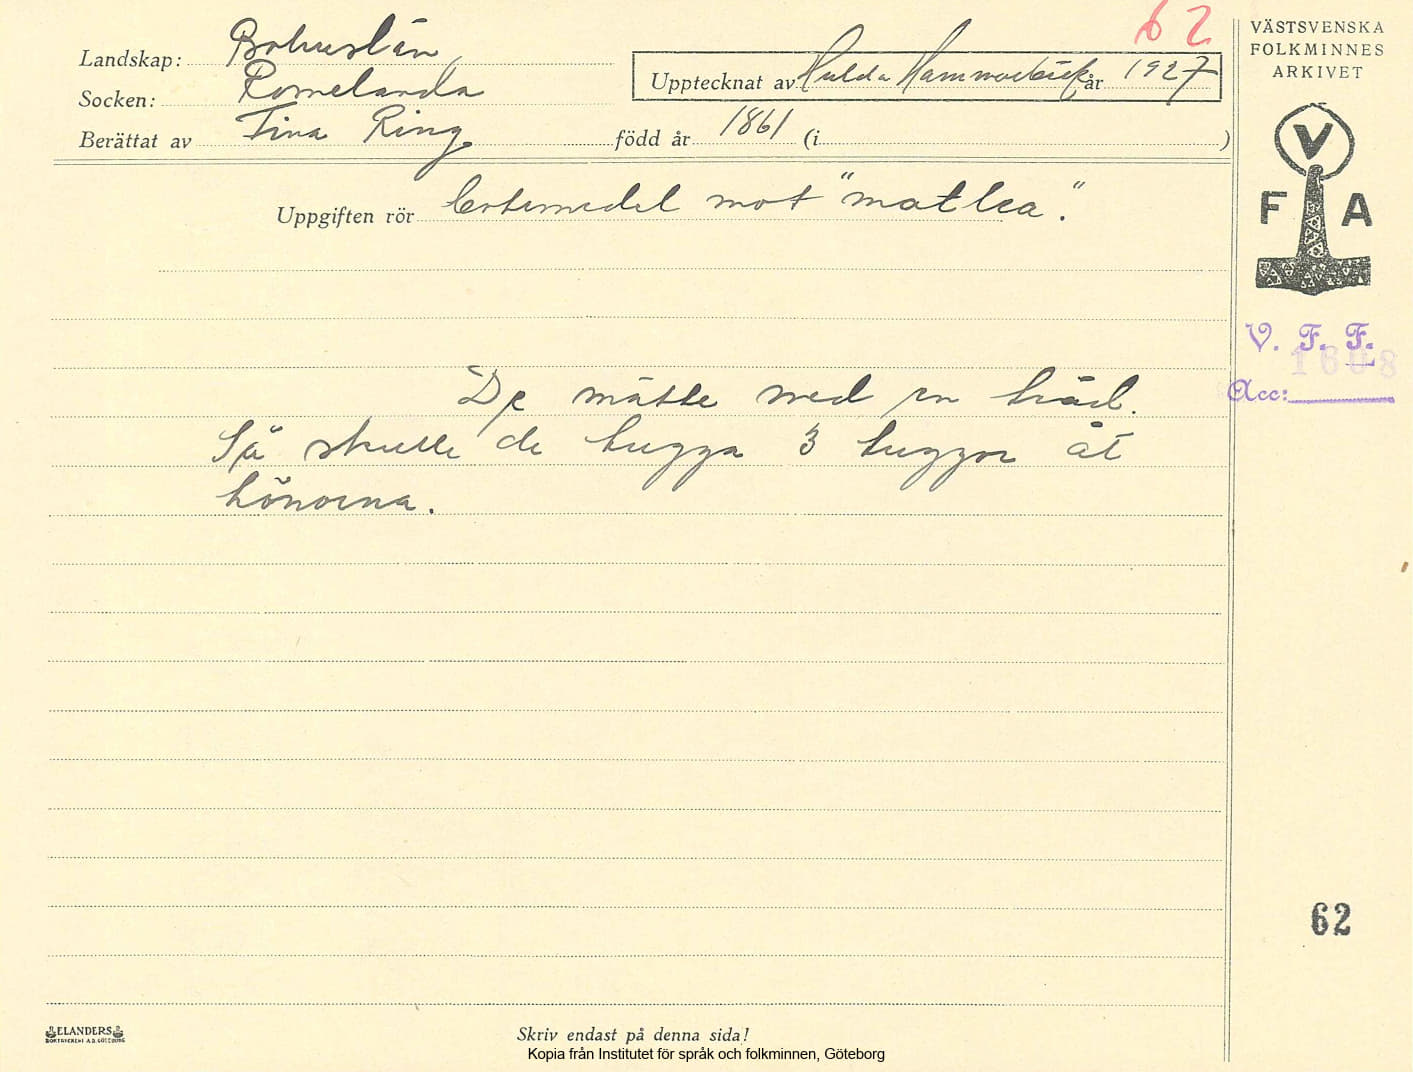 62
VÄSTSVENSKA
FOLKMINNES
ARKIVET
Landskap: Bohuslän
Socken: Romelanda
Upptecknat av Hulda Hammarbäck år 1927
Berättat av Tina Ring född år 1861 (i )
Uppgiften rör Botemedel mot "matlea".
V
F A
V. F. F.
1608
Acc:
De mätte med en tråd.
Så skulle de tugga 3 tuggor åt
hönorna.
62
ELANDERS
BOKTRYCKERI A.B. GÖTEBORG
Skriv endast på denna sida!
Kopia från Institutet för språk och folkminnen, Göteborg